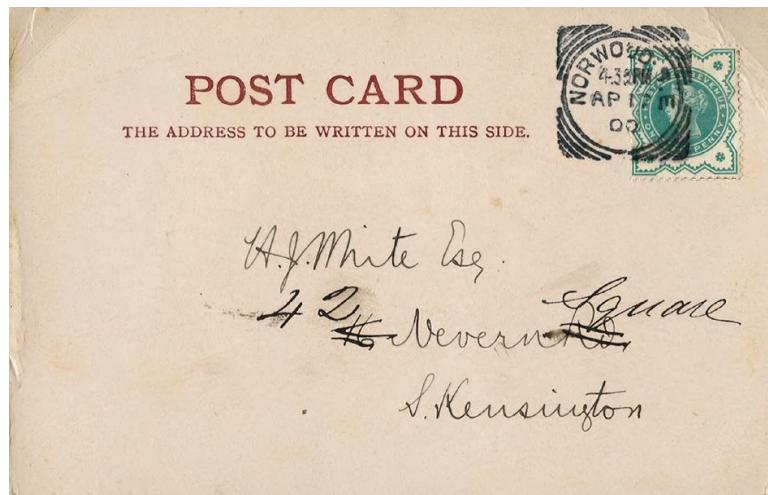 POST CARD
THE ADDRESS TO BE WRITTEN ON THIS SIDE.
NORWOOD. S.E
4.30PM
AP
00
REVENUE
PENNY
H.J. White Esq.
42 Nevern Square
S. Kensington